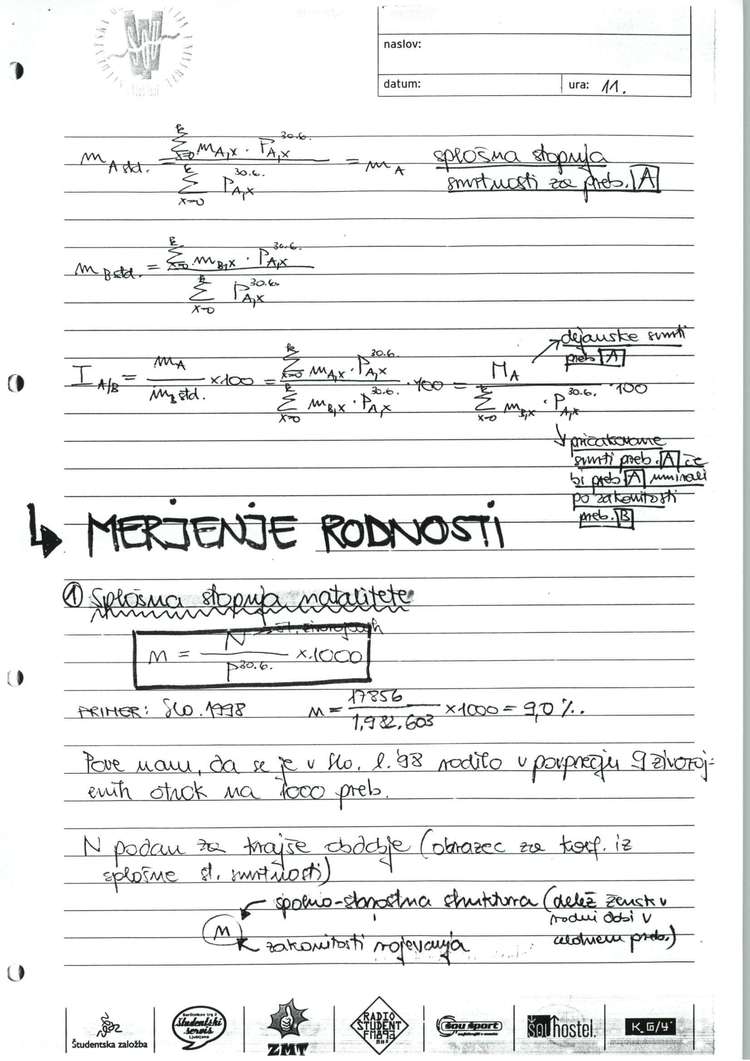 naslov:
datum:
ura: 11.
m A std. = Σ(x=0, k) m A,x · P A,x 30.6. / Σ(x=0, k) P A,x 30.6. = m A
splošna stopnja
smrtnosti za preb. A
m B std. = Σ(x=0, k) m B,x · P A,x 30.6. / Σ(x=0, k) P A,x 30.6.
I A/B = m A / m B std. × 100 = Σ(x=0, k) m A,x · P A,x 30.6. / Σ(x=0, k) m B,x · P A,x 30.6. · 100 = M A / Σ(x=0, k) m B,x · P A,x 30.6. · 100
dejanske smrti
preb. A
pričakovane
smrti preb. A če
bi preb. A umirali
po zakonitosti
preb. B
↳ MERJENJE RODNOSTI
① Splošna stopnja natalitete
n = N / P 30.6. × 1000
→ št. živorojenih
PRIMER: Slo. 1998 n = 17856 / 1,982.603 × 1000 = 9,0 ‰
Pove nam, da se je v Slo. l. '98 rodilo v povprečju 9 živoroj-
enih otrok na 1000 preb.
N podan za krajše obdobje (obrazec za koef. iz
splošne st. smrtnosti)
spolno-starostna struktura (delež žensk v
rodni dobi v
celotnem preb.)
n
zakonitosti rojevanja
Študentska založba
študentski
servis
Ljubljana
ZMT
RADIO
ŠTUDENT
FM 89,3
MHz
šou šport
šou hostel.
K G/4